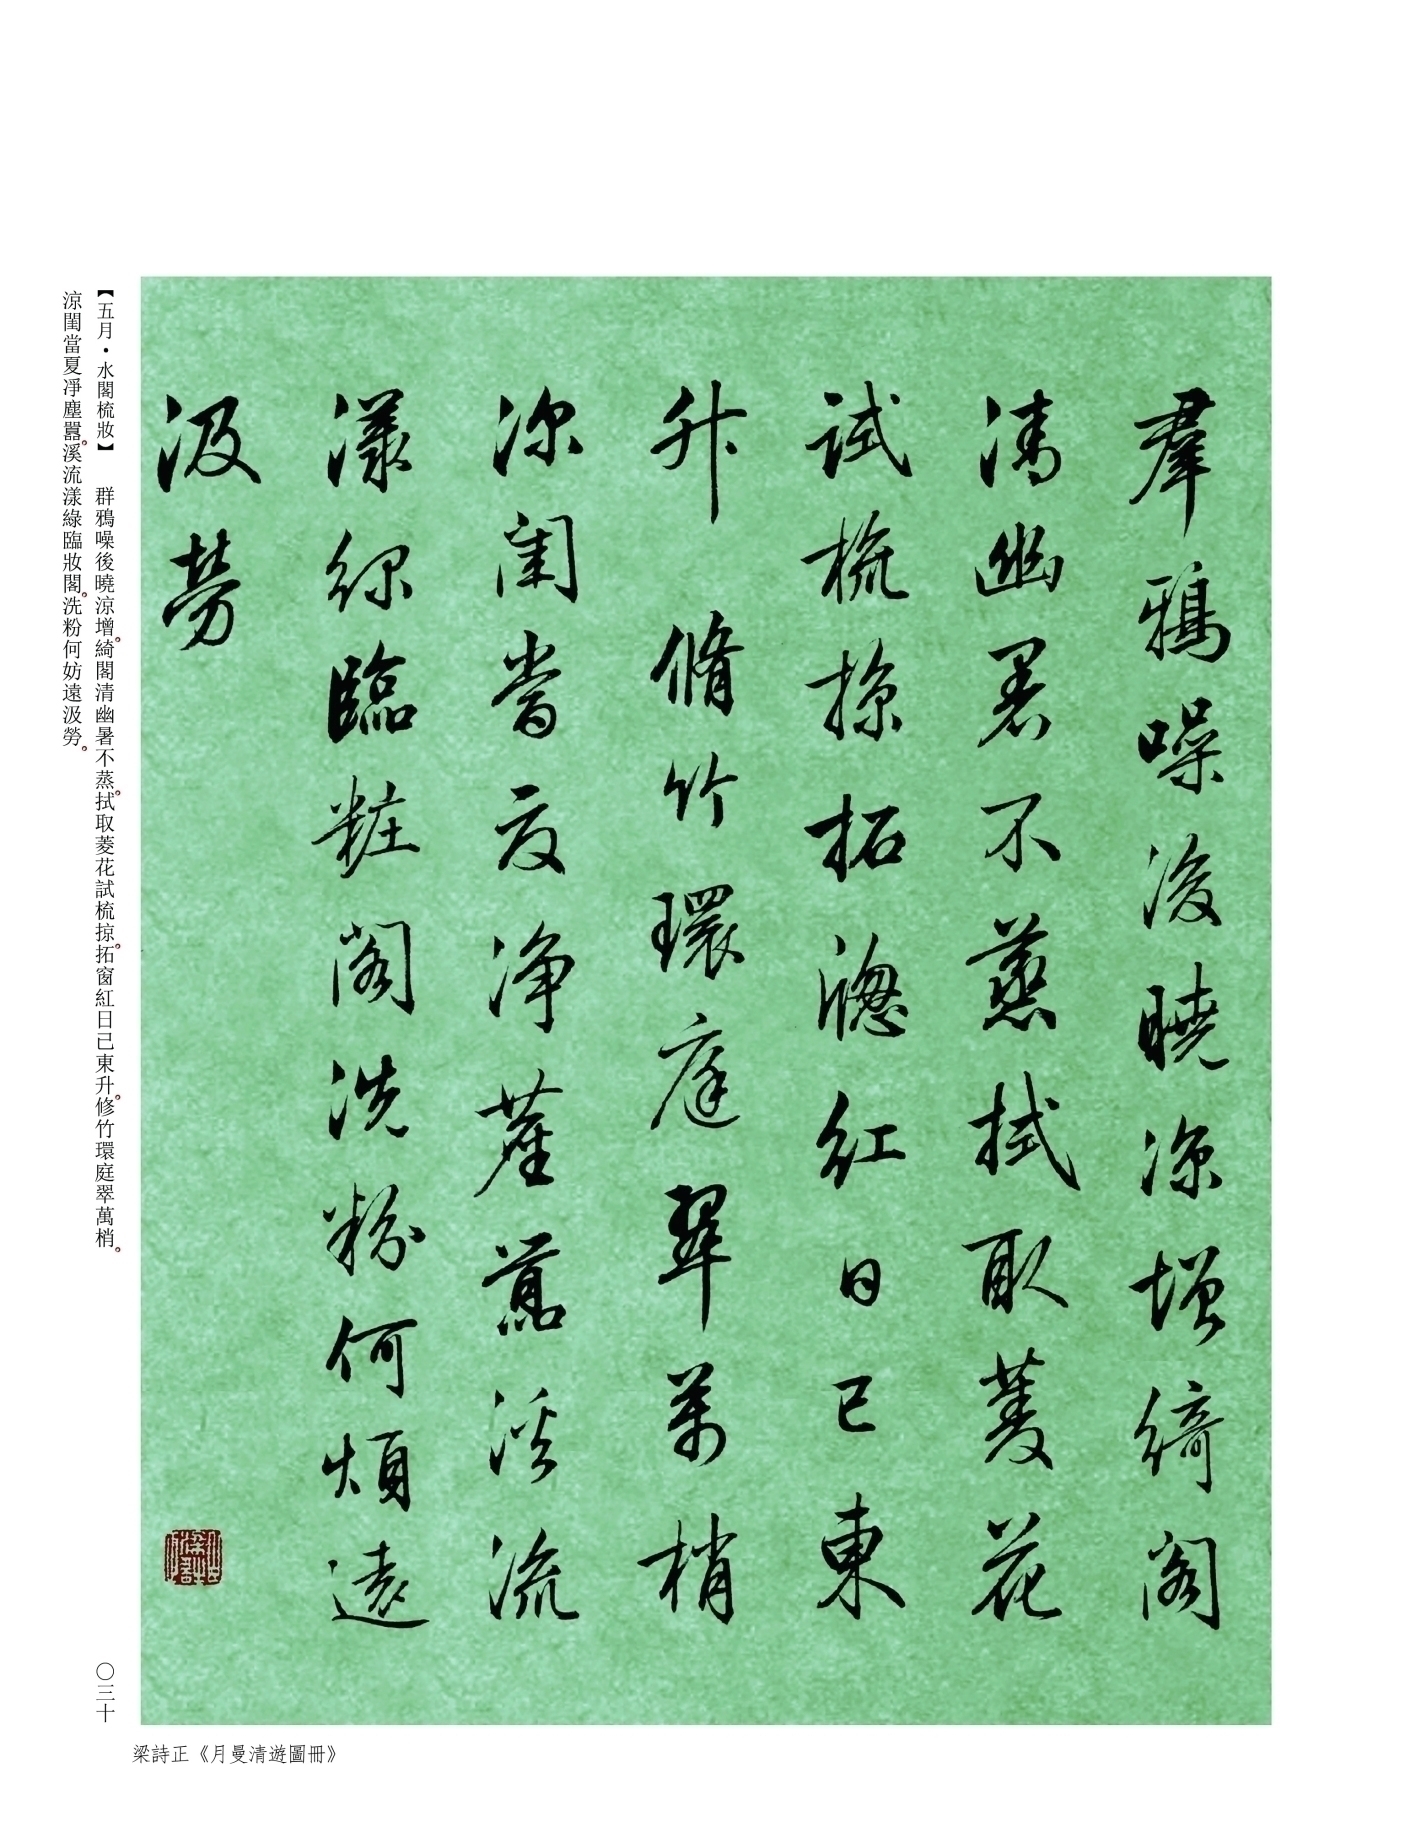 羣鴉噪後曉涼增綺閣
清幽暑不蒸拭取菱花
試梳掠拓牕紅日已東
升 脩竹環庭翠萬梢
深閨當夏淨塵囂溪流
漾綠臨粧閣洗粉何煩遠
汲勞
【五月·水閣梳妝】 群鴉噪後曉涼增。綺閣清幽暑不蒸。拭取菱花試梳掠。拓窗紅日已東升。修竹環庭翠萬梢。
涼閨當夏凈塵囂。溪流漾綠臨妝閣。洗粉何妨遠汲勞。
〇三十
梁詩正《月曼清遊圖冊》